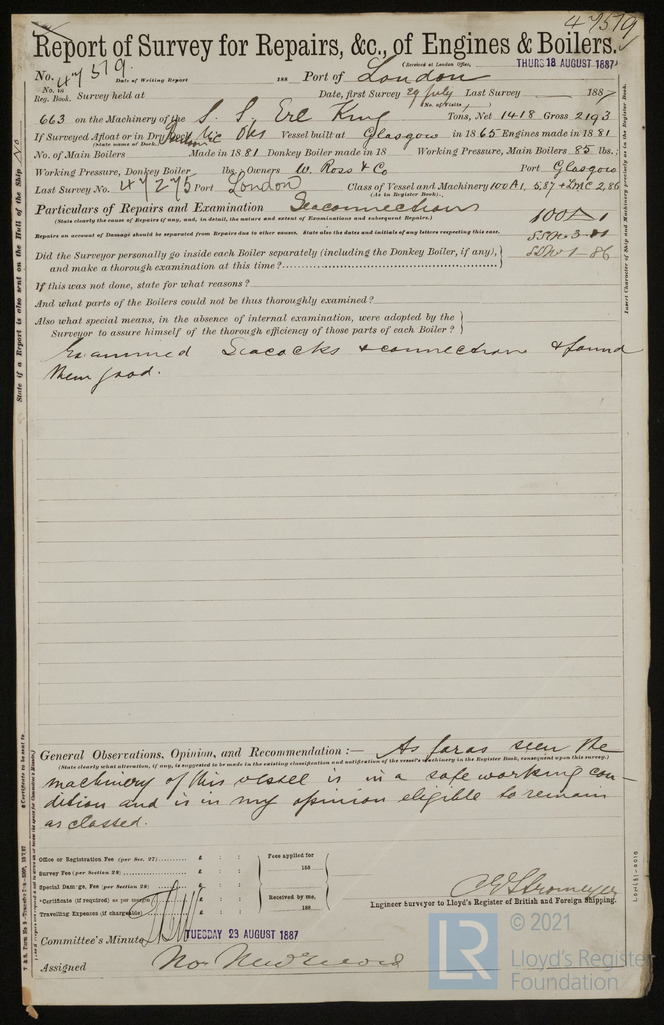 47519
Report of Survey for Repairs, &c., of Engines & Boilers.
(Received at London Office, THURS 18 AUGUST 1887)
No. 47519. Date of Writing Report 188 Port of London
No. in Reg. Book. Survey held at Date, first Survey 29 July Last Survey 1887
(No. of Visits, )
663 on the Machinery of the S. S. Erl King Tons, Net 1418 Gross 2193
If Surveyed Afloat or in Dry Dock Vessel built at Glasgow in 1865 Engines made in 1881
(State name of Dock.)
No. of Main Boilers Made in 1881 Donkey Boiler made in 18 Working Pressure, Main Boilers 85 lbs.;
Working Pressure, Donkey Boiler lbs.; Owners W. Ross & Co Port Glasgow
Last Survey No. 47275 Port London Class of Vessel and Machinery 100A1, 5,87 + LMC 2,86
(As in Register Book).
Particulars of Repairs and Examination Seaconnections
(State clearly the cause of Repairs if any, and, in detail, the nature and extent of Examinations and subsequent Repairs.)
100A1
Repairs on account of Damage should be separated from Repairs due to other causes. State also the dates and initials of any letters respecting this case.
Did the Surveyor personally go inside each Boiler separately (including the Donkey Boiler, if any),
and make a thorough examination at this time?
If this was not done, state for what reasons?
And what parts of the Boilers could not be thus thoroughly examined?
Also what special means, in the absence of internal examination, were adopted by the
Surveyor to assure himself of the thorough efficiency of those parts of each Boiler?
Examined Seacocks & connection & found
them good.
General Observations, Opinion, and Recommendation :— As far as seen the
(State clearly what alteration, if any, is suggested to be made in the existing classification and notification of the vessel's machinery in the Register Book, consequent upon this survey.)
machinery of this vessel is in a safe working con-
dition and is in my opinion eligible to remain
as classed.
Office or Registration Fee (per Sec. 27) £ : : Fees applied for
Survey Fee (per Section 28) £ : : 188
Special Damage, Fee (per Section 28) £ : :
Certificate (if required) as per margin £ : : Received by me,
Travelling Expenses (if chargeable) £ : : 188
C E Stromeyer
Engineer Surveyor to Lloyd's Register of British and Foreign Shipping.
Committee's Minute TUESDAY 23 AUGUST 1887
Assigned
State if a Report is also sent on the Hull of the Ship No
Insert Character of Ship and Machinery precisely as in the Register Book.
LR
© 2021
Lloyd's Register
Foundation